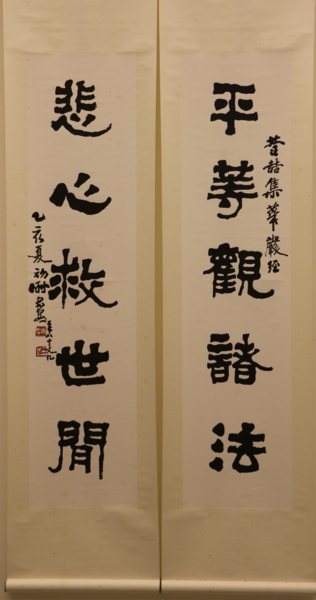 平等觀諸法
集華嚴經
悲心救世間
乙亥夏初